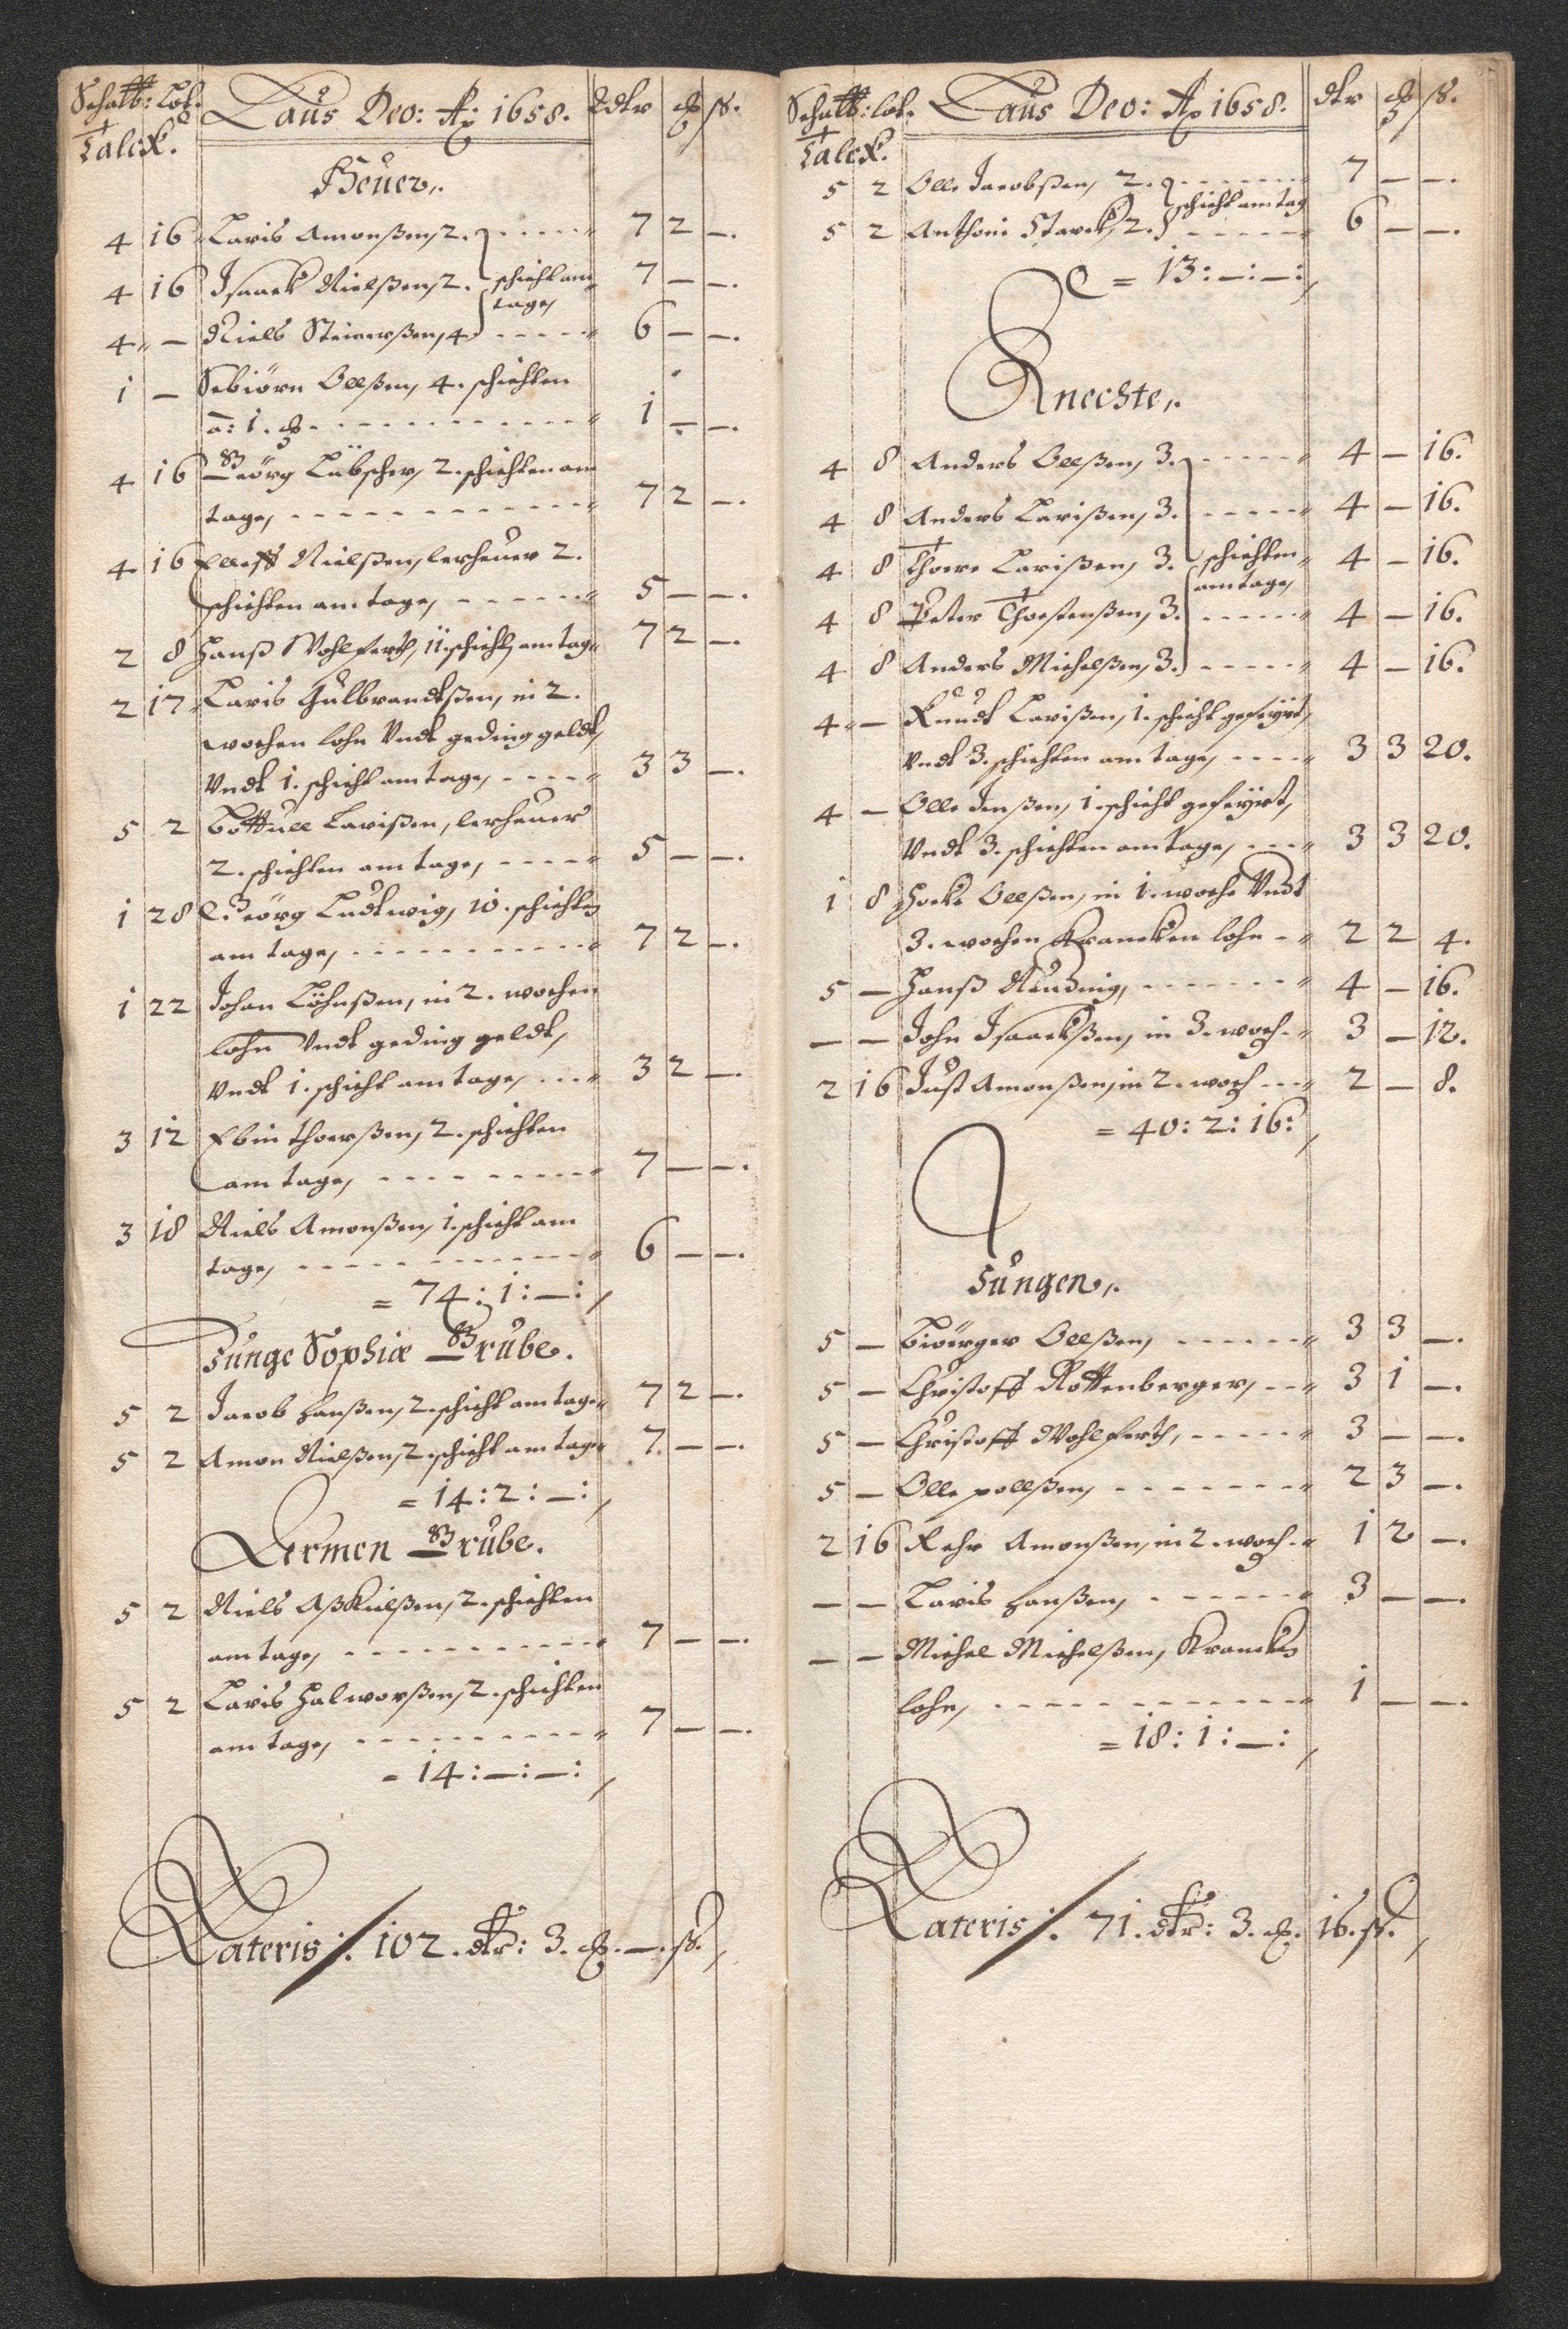 Schaltt: Lot. Laus Deo: Ao 1658. Rdlr ß.
Talck.
Heuer,.
4 16 Laris Amonßen, 2. 7 2 —.
4 16 Isaack Nielßen, 2. schicht am 7 — —.
tage,
4 — Niels Steinerßen, 4. 6 — —.
1 — Sebiörn Olleßen, 4. schichten
a: 1. 1 — —.
4 16 Geörg Lübscher, 2. schichten am
tage, 7 2 —.
4 16 Elleff Nielßen, lerheuer 2.
schichten am tage, 5 — —.
2 8 Hanß Wohlferth, 11. schicht, am tag 7 2 —.
2 17 Laris Gulbrandtßen, in 2.
wochen lohn Vndt geding geldt,
Vndt 1. schicht am tage, 3 3 —.
5 2 Bottuel Larißen, lerheuer
2. schichten am tage, 5 — —.
1 28 Geörg Ludtwig, 10. schichten
am tage, 7 2 —.
1 22 Johan Löhnßen, in 2. wochen
lohn Vndt geding geldt,
Vndt 1. schicht am tage, 3 2 —.
3 12 Ebin thorßen, 2. schichten
am tage, 7 — —.
3 18 Niels Amonßen, 1. schicht am
tage, 6 — —.
= 74: 1: —:
Junge Sophiæ Grube.
5 2 Jacob Hanßen, 2. schicht am tage 7 2 —.
5 2 Amon Nielßen, 2. schicht am tage 7. — —.
= 14: 2: —:
Armen Grube.
5 2 Niels Aßkielßen, 2. schichten
am tage, 7 — —.
5 2 Laris Halworßen, 2. schichten
am tage, 7 — —.
= 14: —: —:
Lateris ⁒ 102. dlr: 3. —. ß.
Schaltt: lot. Laus Deo: Ao 1658. dlr ß.
Talck.
5 2 Olle Jacobßen, 2. 7 — —.
schicht am tag
5 2 Anthoni Starck, 2. 6 — —.
= 13: —: —:
Knechte,.
4 8 Anders Olleßen, 3. 4 — 16.
4 8 Anders Larißen, 3. 4 — 16.
4 8 Thore Larißen, 3. schichten 4 — 16.
am tage,
4 8 Peter Thorstenßen, 3. 4 — 16.
4 8 Anders Michelßen, 3. 4 — 16.
4 — Knudt Larißen, 1. schicht gefeyrt,
Vndt 3. schichten am tage, 3 3 20.
4 — Olle Jenßen, 1. schicht gefeyrt,
Vndt 3. schichten am tage, 3 3 20.
1 8 Olleßen, in 1. woche Vndt
3. wochen Krancken lohn 2 2 4.
5 — Hanß 4 — 16.
— — John Isaackßen, in 3. woch. 3 — 12.
2 16 Just Amonßen, in 2. woch 2 — 8.
= 40: 2: 16:
Jungen,.
5 — Biörger Olleßen, 3 3 —.
5 — Christoff Rottenberger, 3 1 —.
5 — Christoff Wohlferth, 3 — —.
5 — Olle pollßen, 2 3 —.
2 16 Amonßen, in 2. woch. 1 2 —.
— — Laris Hanßen, 3 — —.
— — Michel Michelßen, Krancken
lohn, 1 — —.
= 18: 1: —:
Lateris ⁒ 71. dlr: 3. 16. ß.